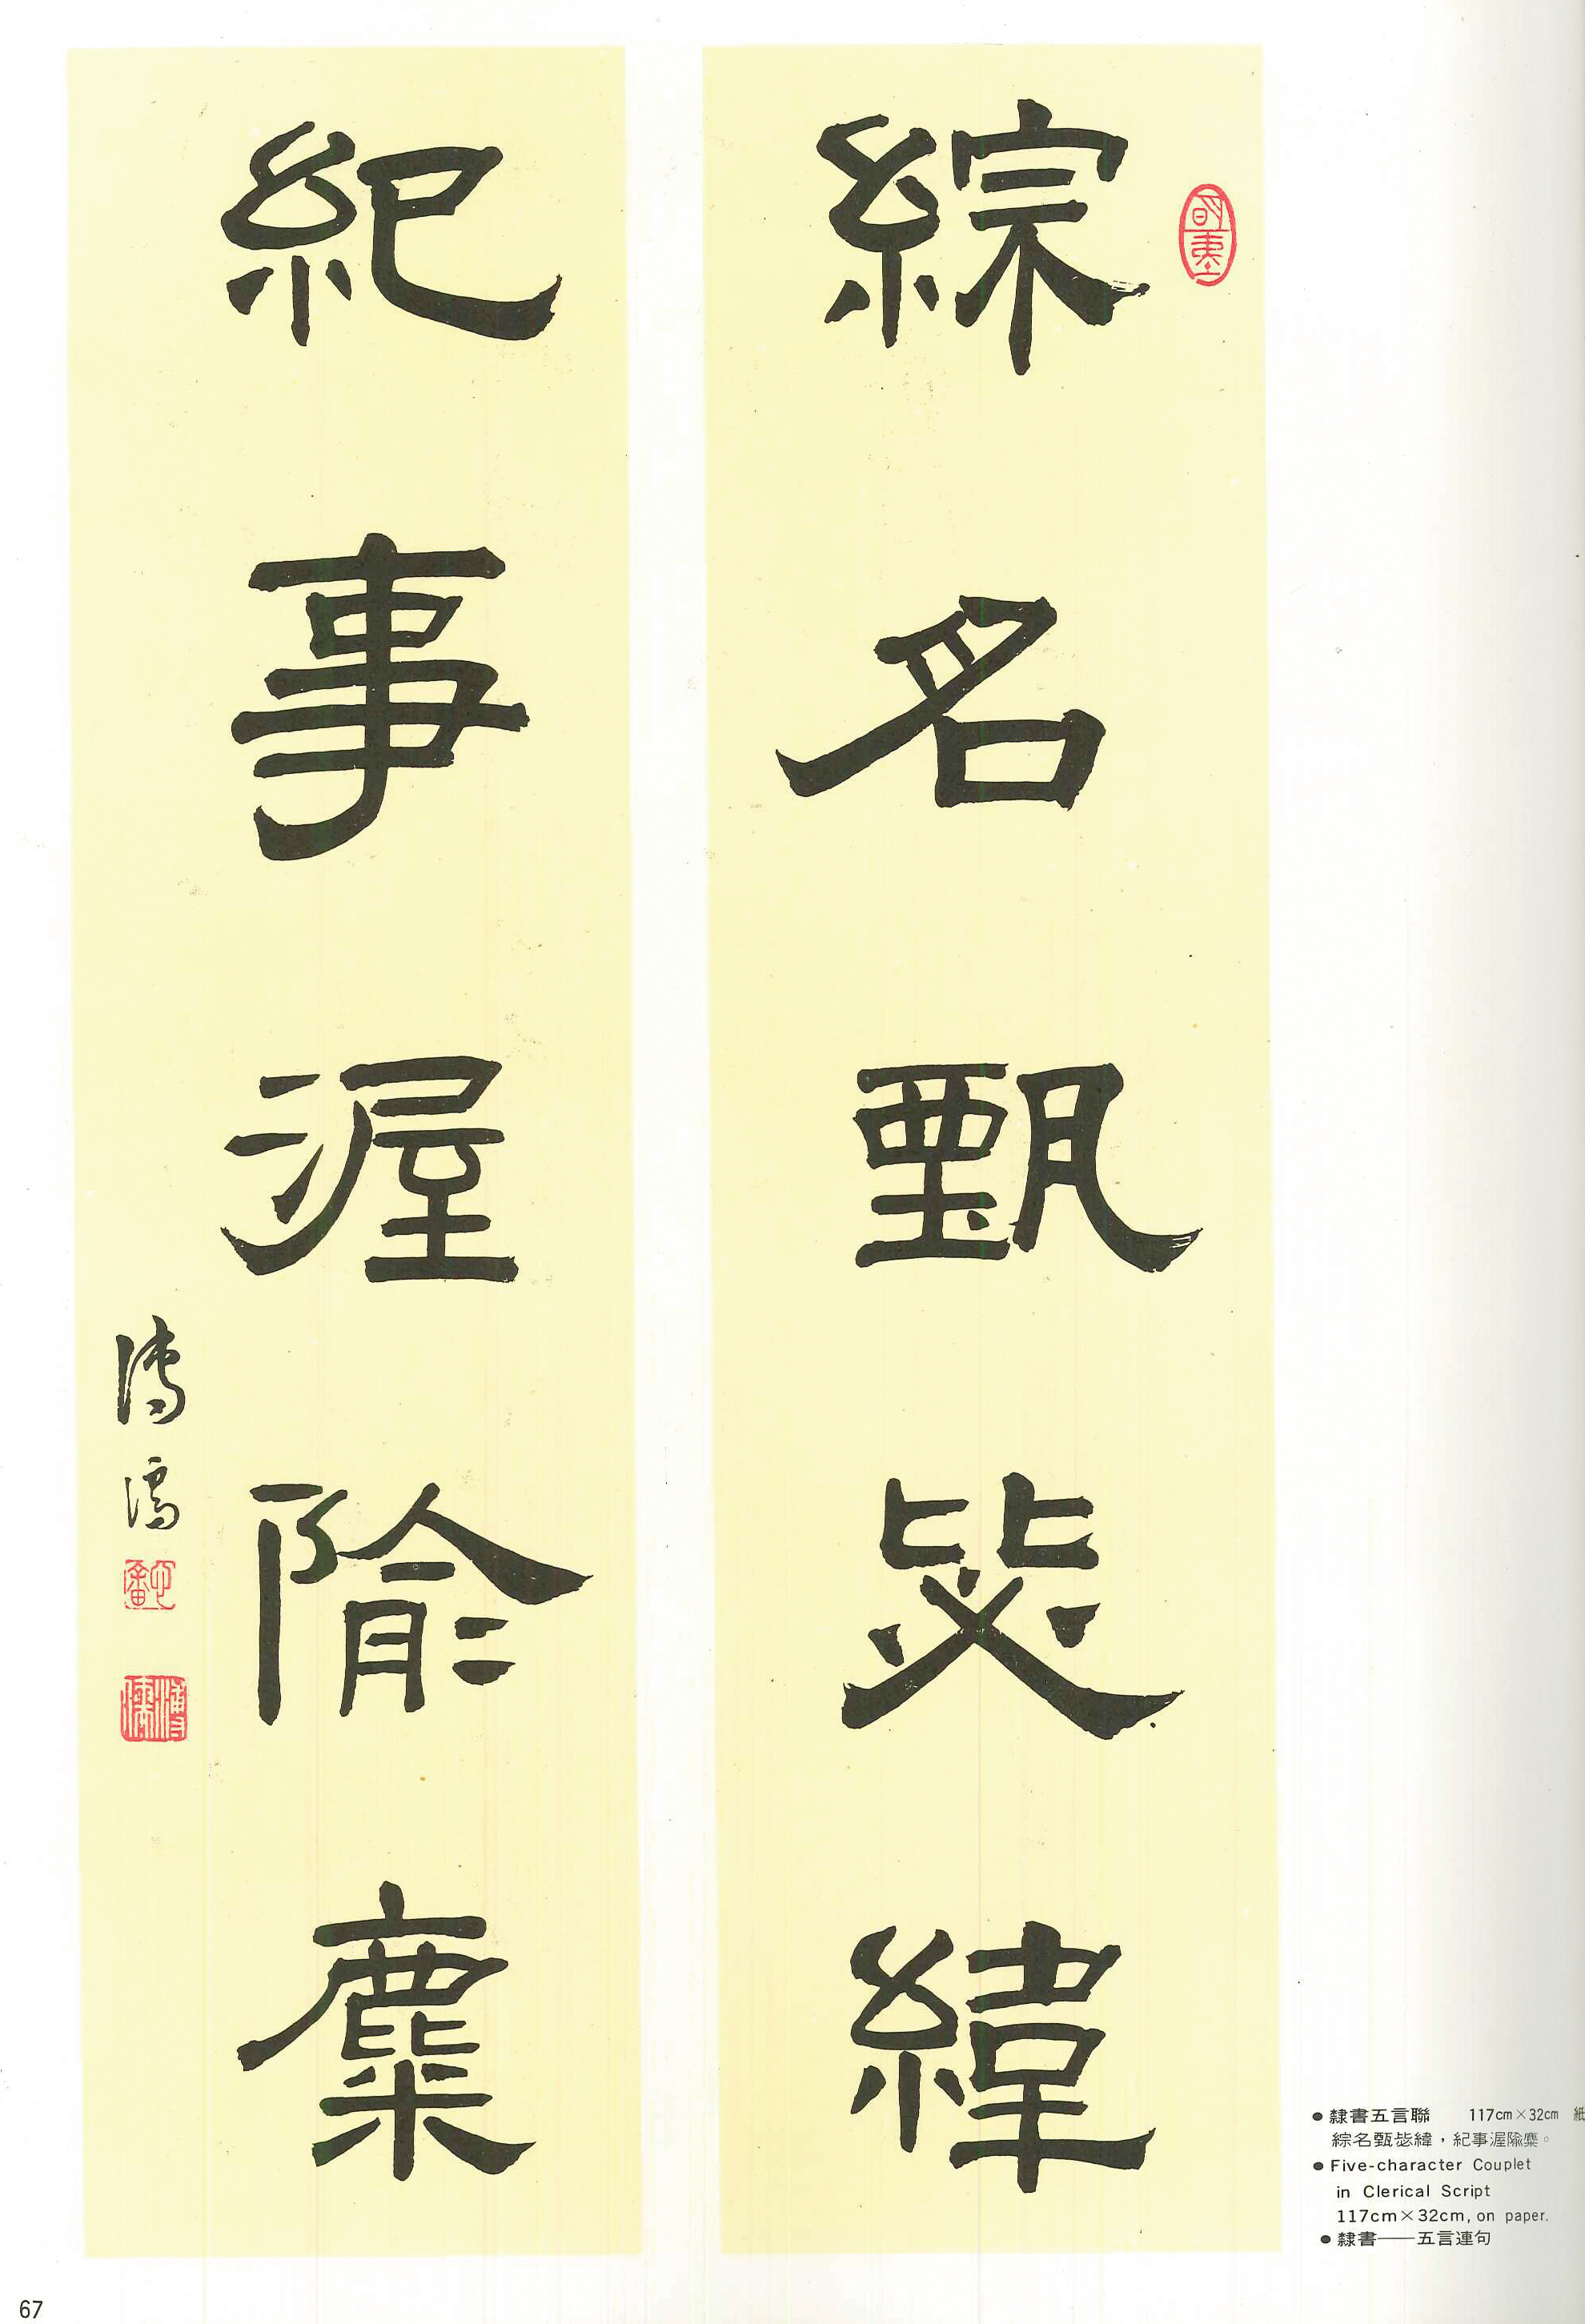 綜名甄毖緯
紀事渥隃麋
溥儒
溥儒
● 隸書五言聯 117cm×32cm 紙
綜名甄毖緯，紀事渥隃麋。
● Five-character Couplet
in Clerical Script
117cm×32cm, on paper.
● 隸書——五言連句
67